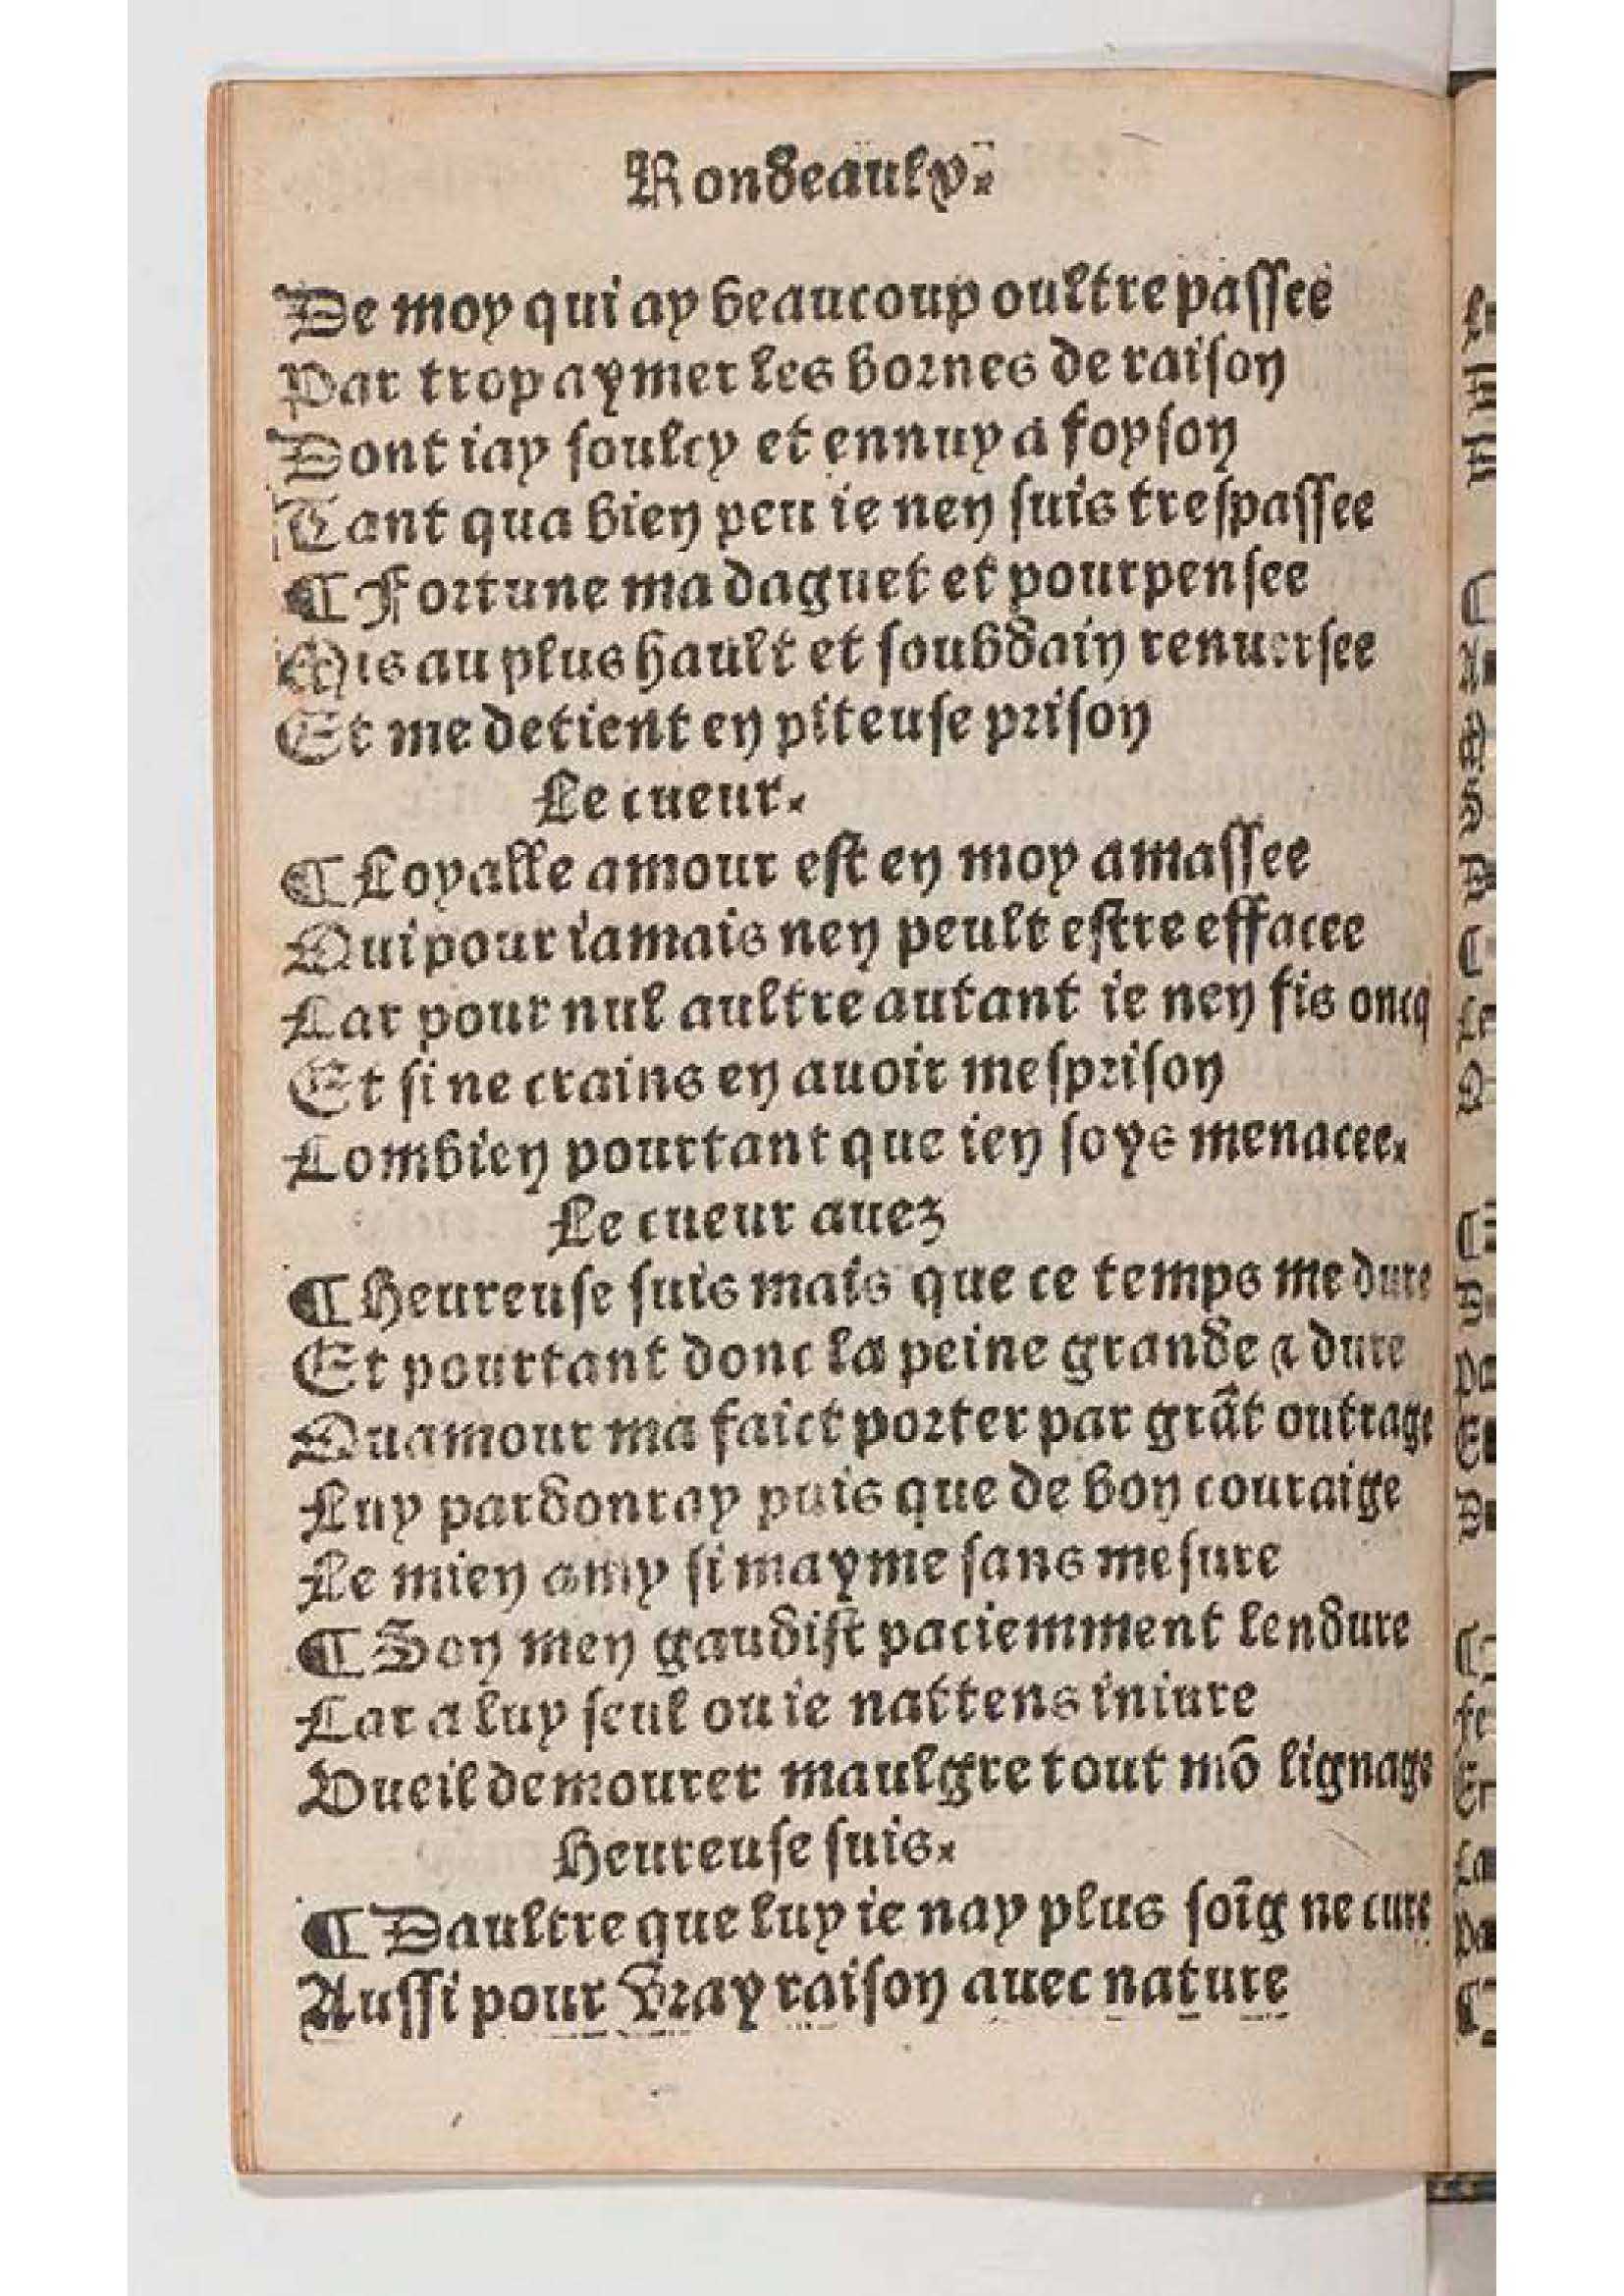 Rondeaulx.
De moy qui ay beaucoup oultre passee
Par trop aymer les bornes de raison
Dont iay soulcy et ennuy a foyson
Tant qua bien peu ie nen suis trespassee
¶ Fortune ma daguet et pourpensee
Mis au plus hault et soubdain renuersee
Et me detient en piteuse prison
Le cueur.
¶ Loyalle amour est en moy amassee
Qui pour iamais nen peult estre effacee
Car pour nul aultre autant ie nen fis oncq
Et si ne crains en auoir mesprison
Combien pourtant que ien soys menacee.
Le cueur auez
¶ Heureuse suis mais que ce temps me dure
Et pourtant donc la peine grande ⁊ dure
Quamour ma faict porter par grãt outrage
Luy pardonray puis que de bon couraige
Le mien amy si mayme sans mesure
¶ Son men gaudist paciemment lendure
Car a luy seul ou ie nattens iniure
Vueil demourer maulgre tout mõ lignage
Heureuse suis.
¶ Daultre que luy ie nay plus soĩg ne cure
Aussi pour vray raison auec nature